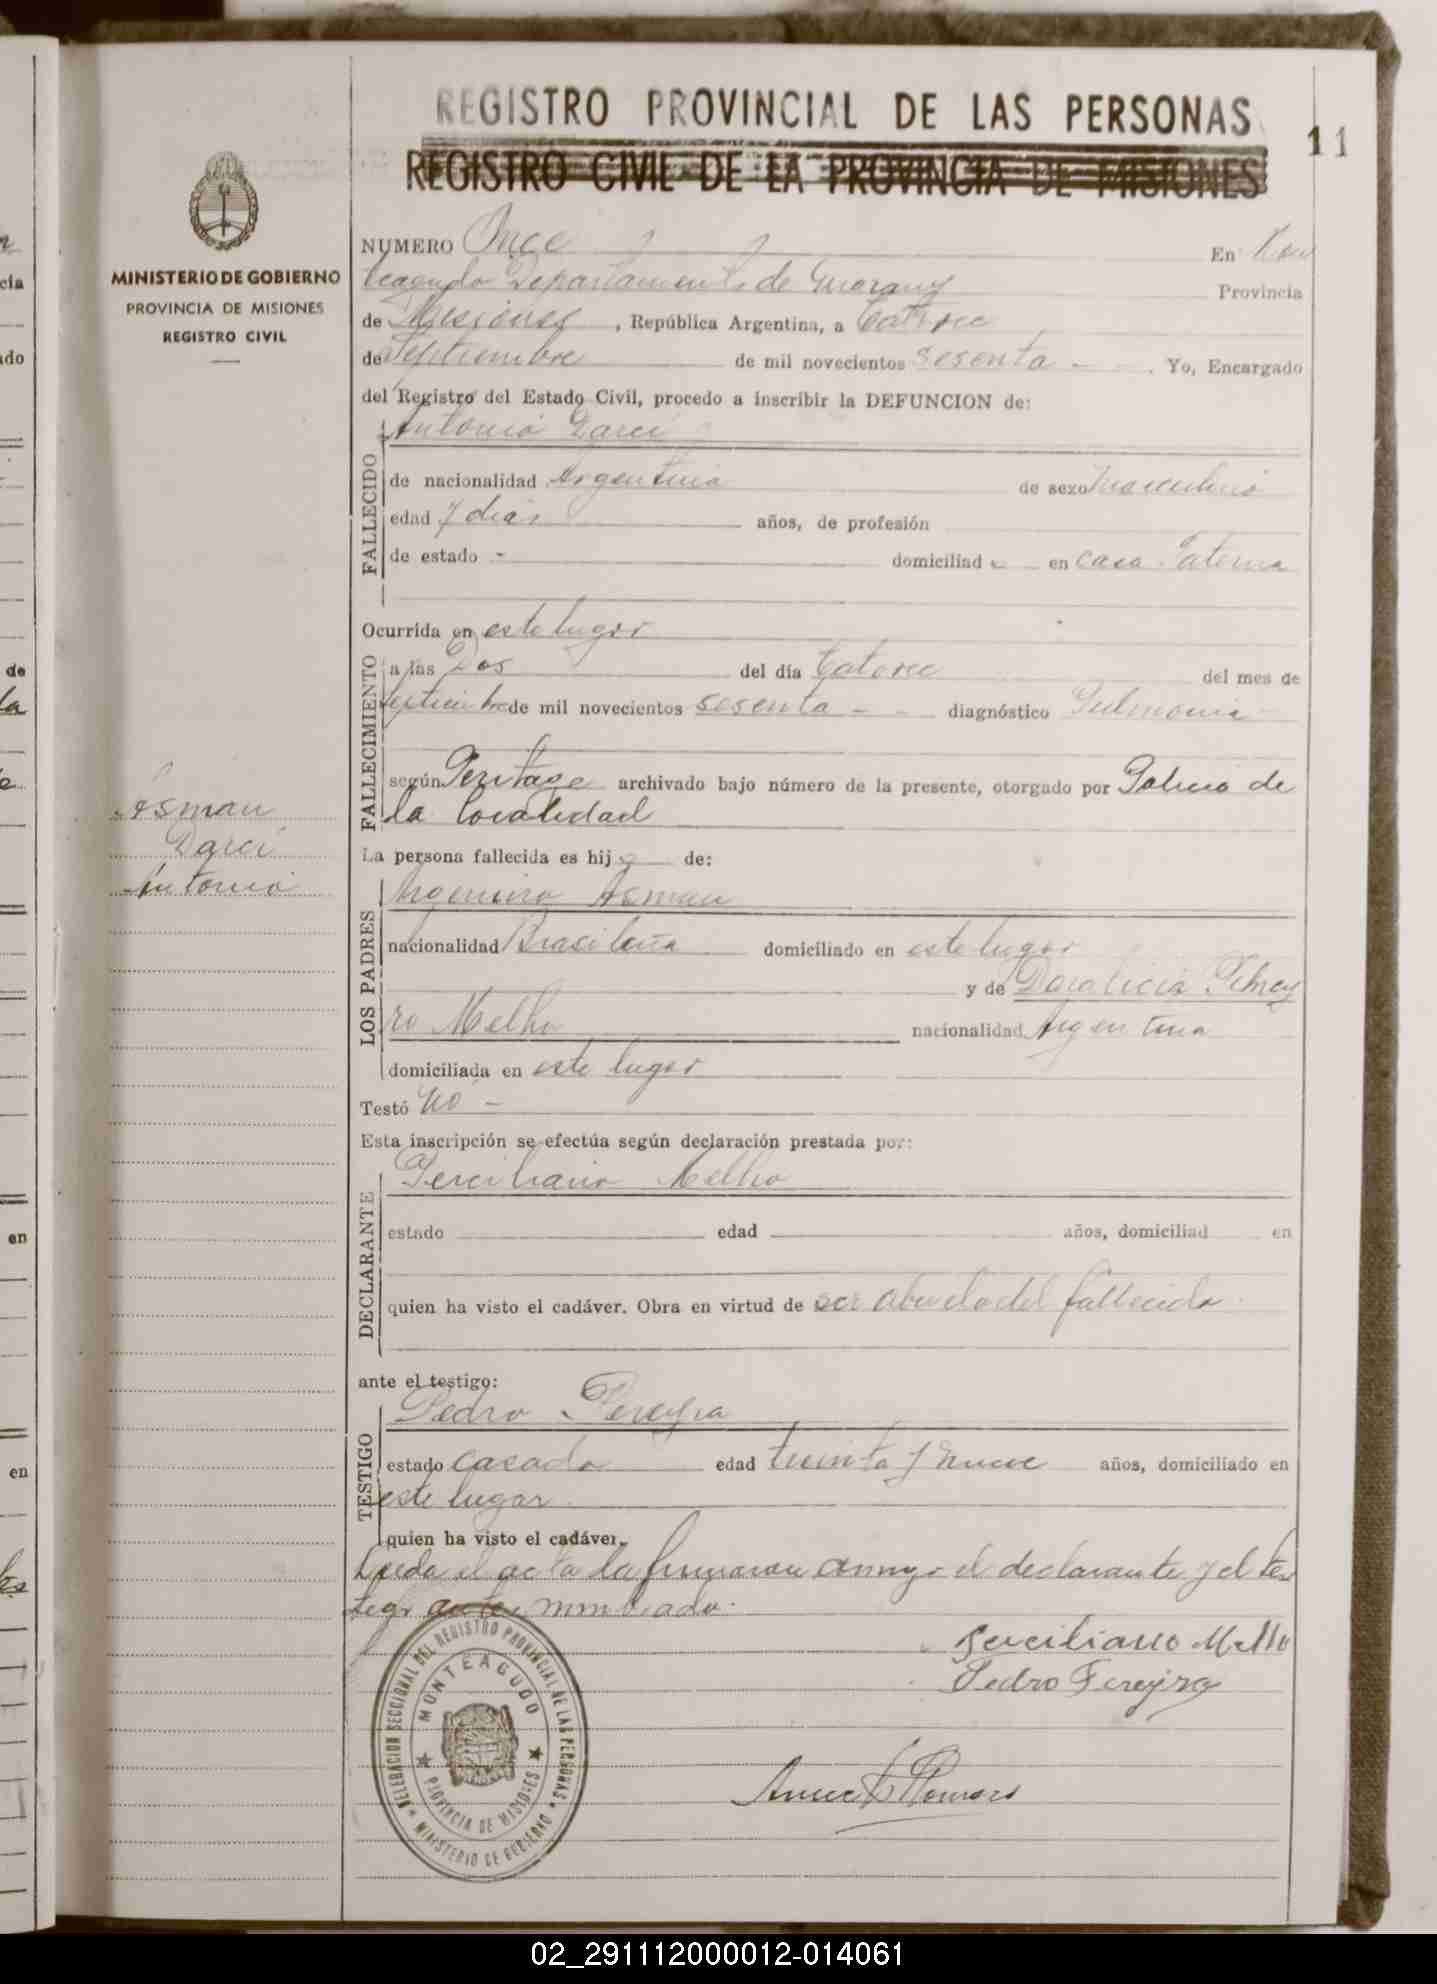 REGISTRO PROVINCIAL DE LAS PERSONAS
REGISTRO CIVIL DE LA PROVINCIA DE MISIONES
11
MINISTERIO DE GOBIERNO
PROVINCIA DE MISIONES
REGISTRO CIVIL
NUMERO Once En Mon
teagudo Departamento de Guarany Provincia
de Misiones, República Argentina, a Catorce
de Septiembre de mil novecientos sesenta -. Yo, Encargado
del Registro del Estado Civil, procedo a inscribir la DEFUNCION de:
Antonio Darci
FALLECIDO
de nacionalidad Argentina de sexo Masculino
edad 7 dias años, de profesión
de estado - domiciliad en casa Paterna
Ocurrida en este lugar
FALLECIMIENTO
a las Dos del día Catorce del mes de
septiembre de mil novecientos sesenta - - diagnóstico Pulmonia -
según Peritage archivado bajo número de la presente, otorgado por Policia de
la localidad
Asman
Darci
Antonio
La persona fallecida es hijo de:
LOS PADRES
Argemiro Asman
nacionalidad Brasileña domiciliado en este lugar
y de
ro Mello nacionalidad Argentina
domiciliada en este lugar
Testó No -
Esta inscripción se efectúa según declaración prestada por:
DECLARANTE
Perciliano Mello
estado edad años, domiciliad en
quien ha visto el cadáver. Obra en virtud de ser abuelo del fallecido.
ante el testigo:
TESTIGO
Pedro Pereyra
estado casado edad treinta y nueve años, domiciliado en
este lugar.
quien ha visto el cadáver.
Leida el acta la firmaron conmigo el declarante y el tes
tigo antes nombrado.
Perciliano Mello
Pedro Fereyra
DELEGACION SECCIONAL DEL REGISTRO PROVINCIAL DE LAS PERSONAS
MONTEAGUDO
PROVINCIA DE MISIONES
MINISTERIO DE GOBIERNO
02_291112000012-014061